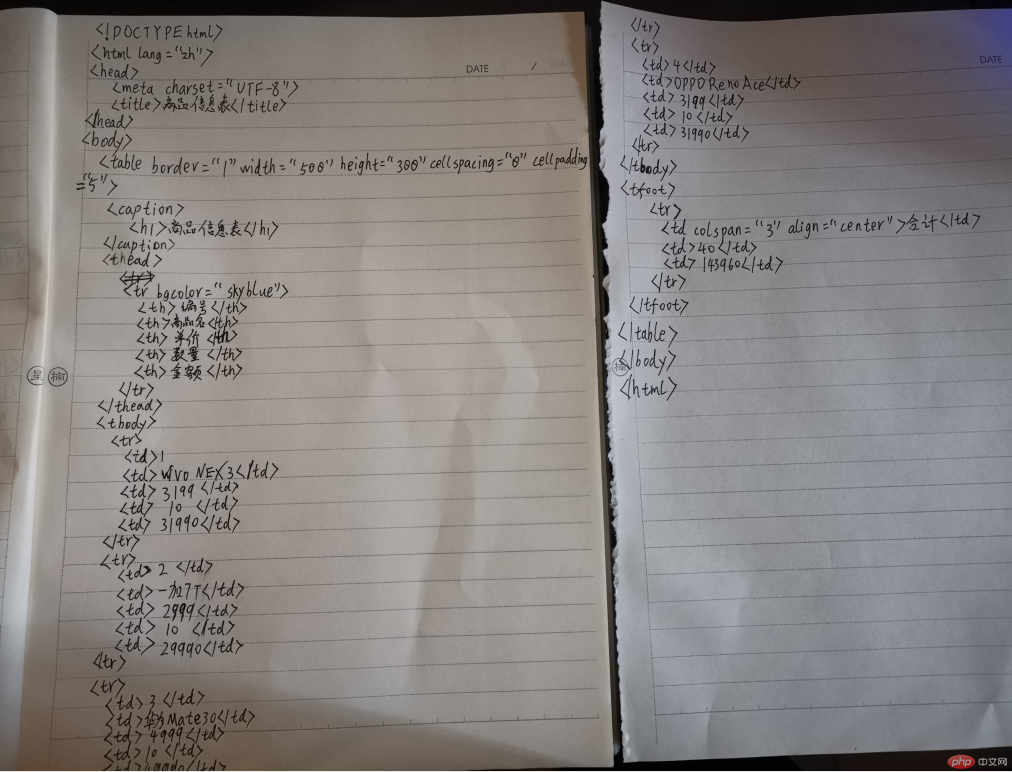 <!DOCTYPE html>
<html lang="zh">
<head>
<meta charset="UTF-8">
<title>商品信息表</title>
</head>
<body>
<table border="1" width="500" height="300" cellspacing="0" cellpadding
="5">
<caption>
<h1>商品信息表</h1>
</caption>
<thead>
<tr bgcolor="skyblue">
<th>编号</th>
<th>商品名</th>
<th>单价</th>
<th>数量</th>
<th>金额</th>
</tr>
</thead>
<tbody>
<tr>
<td>1
<td>vivo NEX3</td>
<td>3199</td>
<td>10</td>
<td>31990</td>
</tr>
<tr>
<td>2</td>
<td>一加7T</td>
<td>2999</td>
<td>10</td>
<td>29990</td>
</tr>
<tr>
<td>3</td>
<td>华为Mate30</td>
<td>4999</td>
<td>10</td>
<td>49990</td>
DATE /
</tr>
<tr>
<td>4</td>
<td>OPPO Reno Ace</td>
<td>3199</td>
<td>10</td>
<td>31990</td>
</tr>
</tbody>
<tfoot>
<tr>
<td colspan="3" align="center">合计</td>
<td>40</td>
<td>143960</td>
</tr>
</tfoot>
</table>
</body>
</html>
DATE
php 中文网